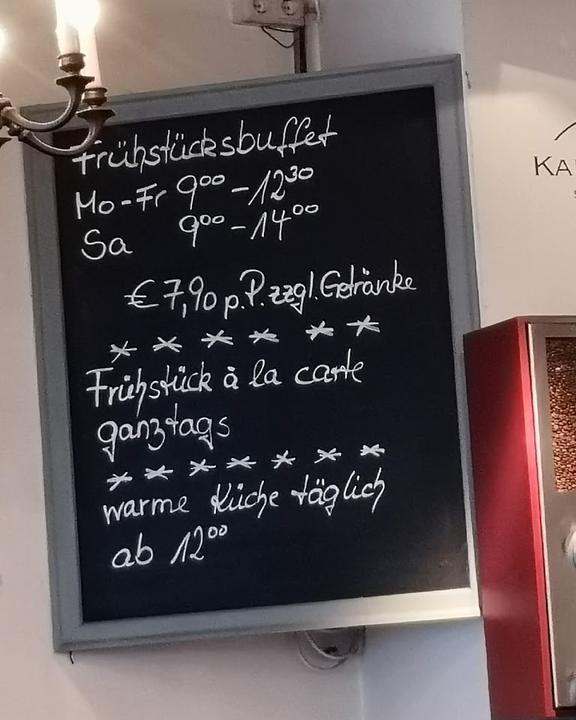 Frühstücksbuffet
Mo-Fr 9⁰⁰ - 12³⁰
Sa 9⁰⁰ - 14⁰⁰
€7,90 p.P. zzgl. Getränke
* * * * * *
Frühstück à la carte
ganztags
* * * * * * *
warme Küche täglich
ab 12⁰⁰